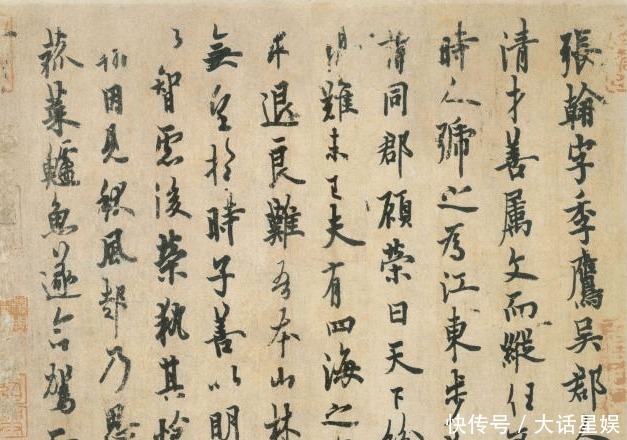 張翰字季鷹吳郡
清才善属文而縱任
時人號之為江東步
謂同郡顧榮曰天下
難未已夫有四海之
求退良難吾本山林
無望於時子善以明
智慮後榮執其愴
翰因見秋風起乃思
菰菜鱸魚遂命駕
快传号/大话星娱